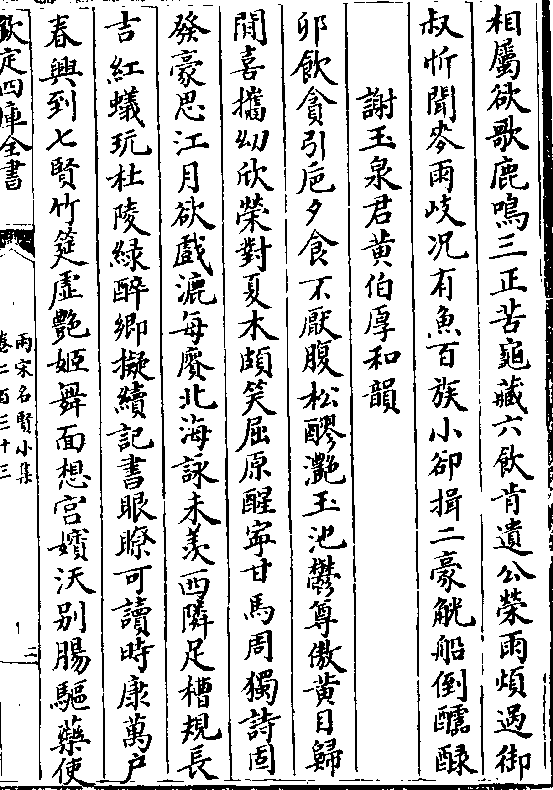 相屬欲歌鹿鳴三正苦龜藏六飲肯遺公榮雨煩過御
叔忻聞麥雨岐况有魚百族小卻揖二豪觥船倒醽醁
謝玉泉君黃伯厚和韻
卯飲貪引巵夕食不厭腹松醪灔玉池鬱尊傲黃目歸
閒喜攜幼欣榮對夏木頗笑屈原醒寜甘馬周獨詩固
發豪思江月欲戲漉每賡北海詠未羨西隣足糟規長
吉紅蟻玩杜陵緑醉鄉擬續記書眼瞭可讀時康萬户
春興到七賢竹筵虛艷姬舞面想宫嬪沃别腸驅藥使
欽定四庫全書
兩宋名賢小集
卷二百三十三
三